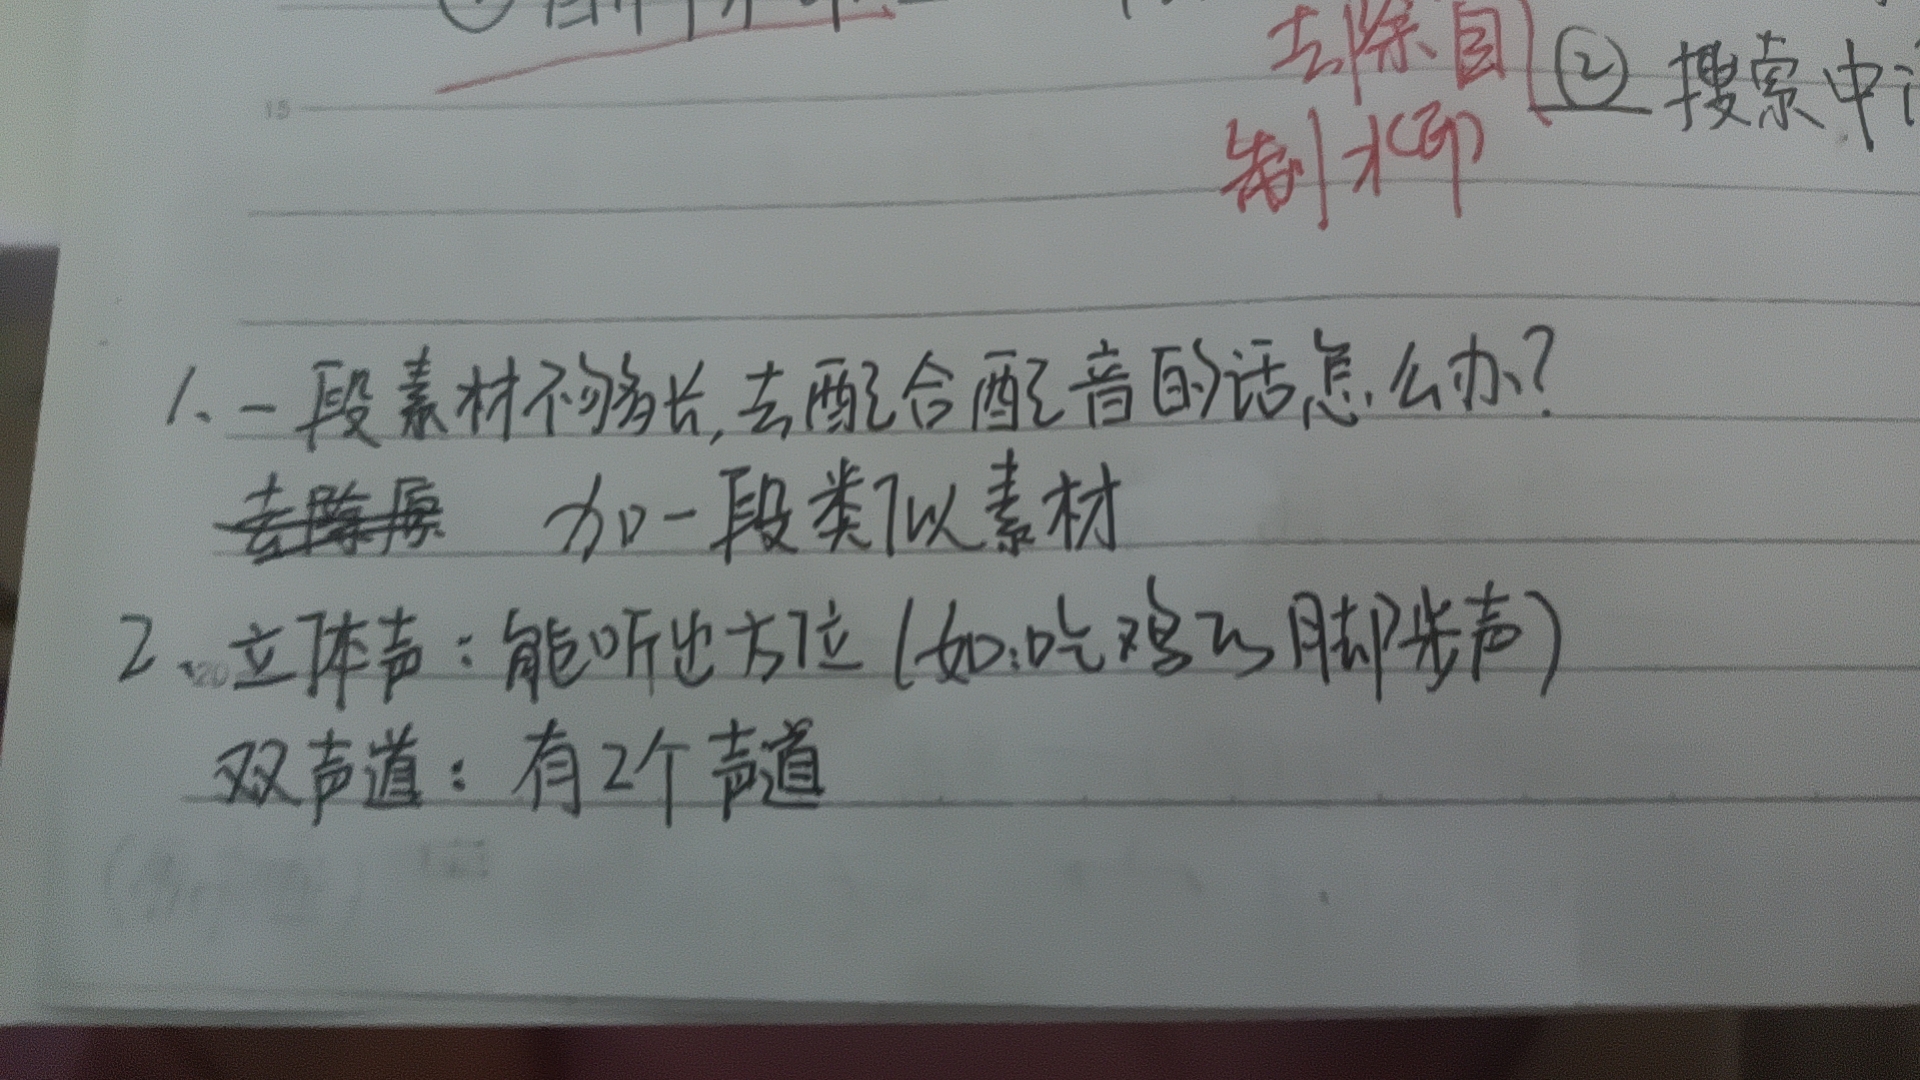 去除自
制水印
② 搜索中
15
1、一段素材不够长,去配合配音的话怎么办?
去除原 加一段类似素材
2、立体声:能听出方位(如:吃鸡的脚步声)
20
双声道:有2个声道